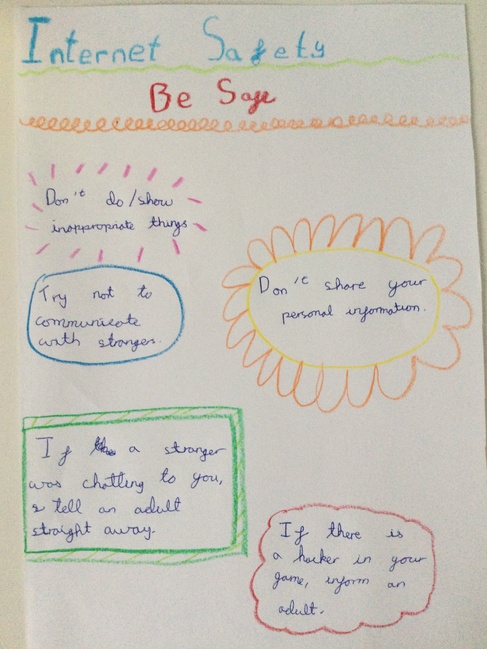 Internet Safety
Be Safe
Don't do/show
inappropriate things
Try not to
communicate
with stranges.
Don't share your
personal information.
If a stranger
was chatting to you,
tell an adult
straight away.
If there is
a hacker in your
game, inform an
adult.